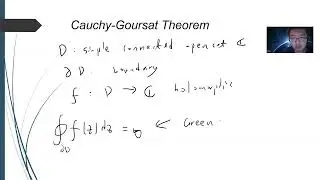 Cauchy-Goursat Theorem
D : simple connected open set ℂ
∂D : boundary
f : D → ℂ holomorphic
∮∂D f(z) dz = 0 ⇐ Green.